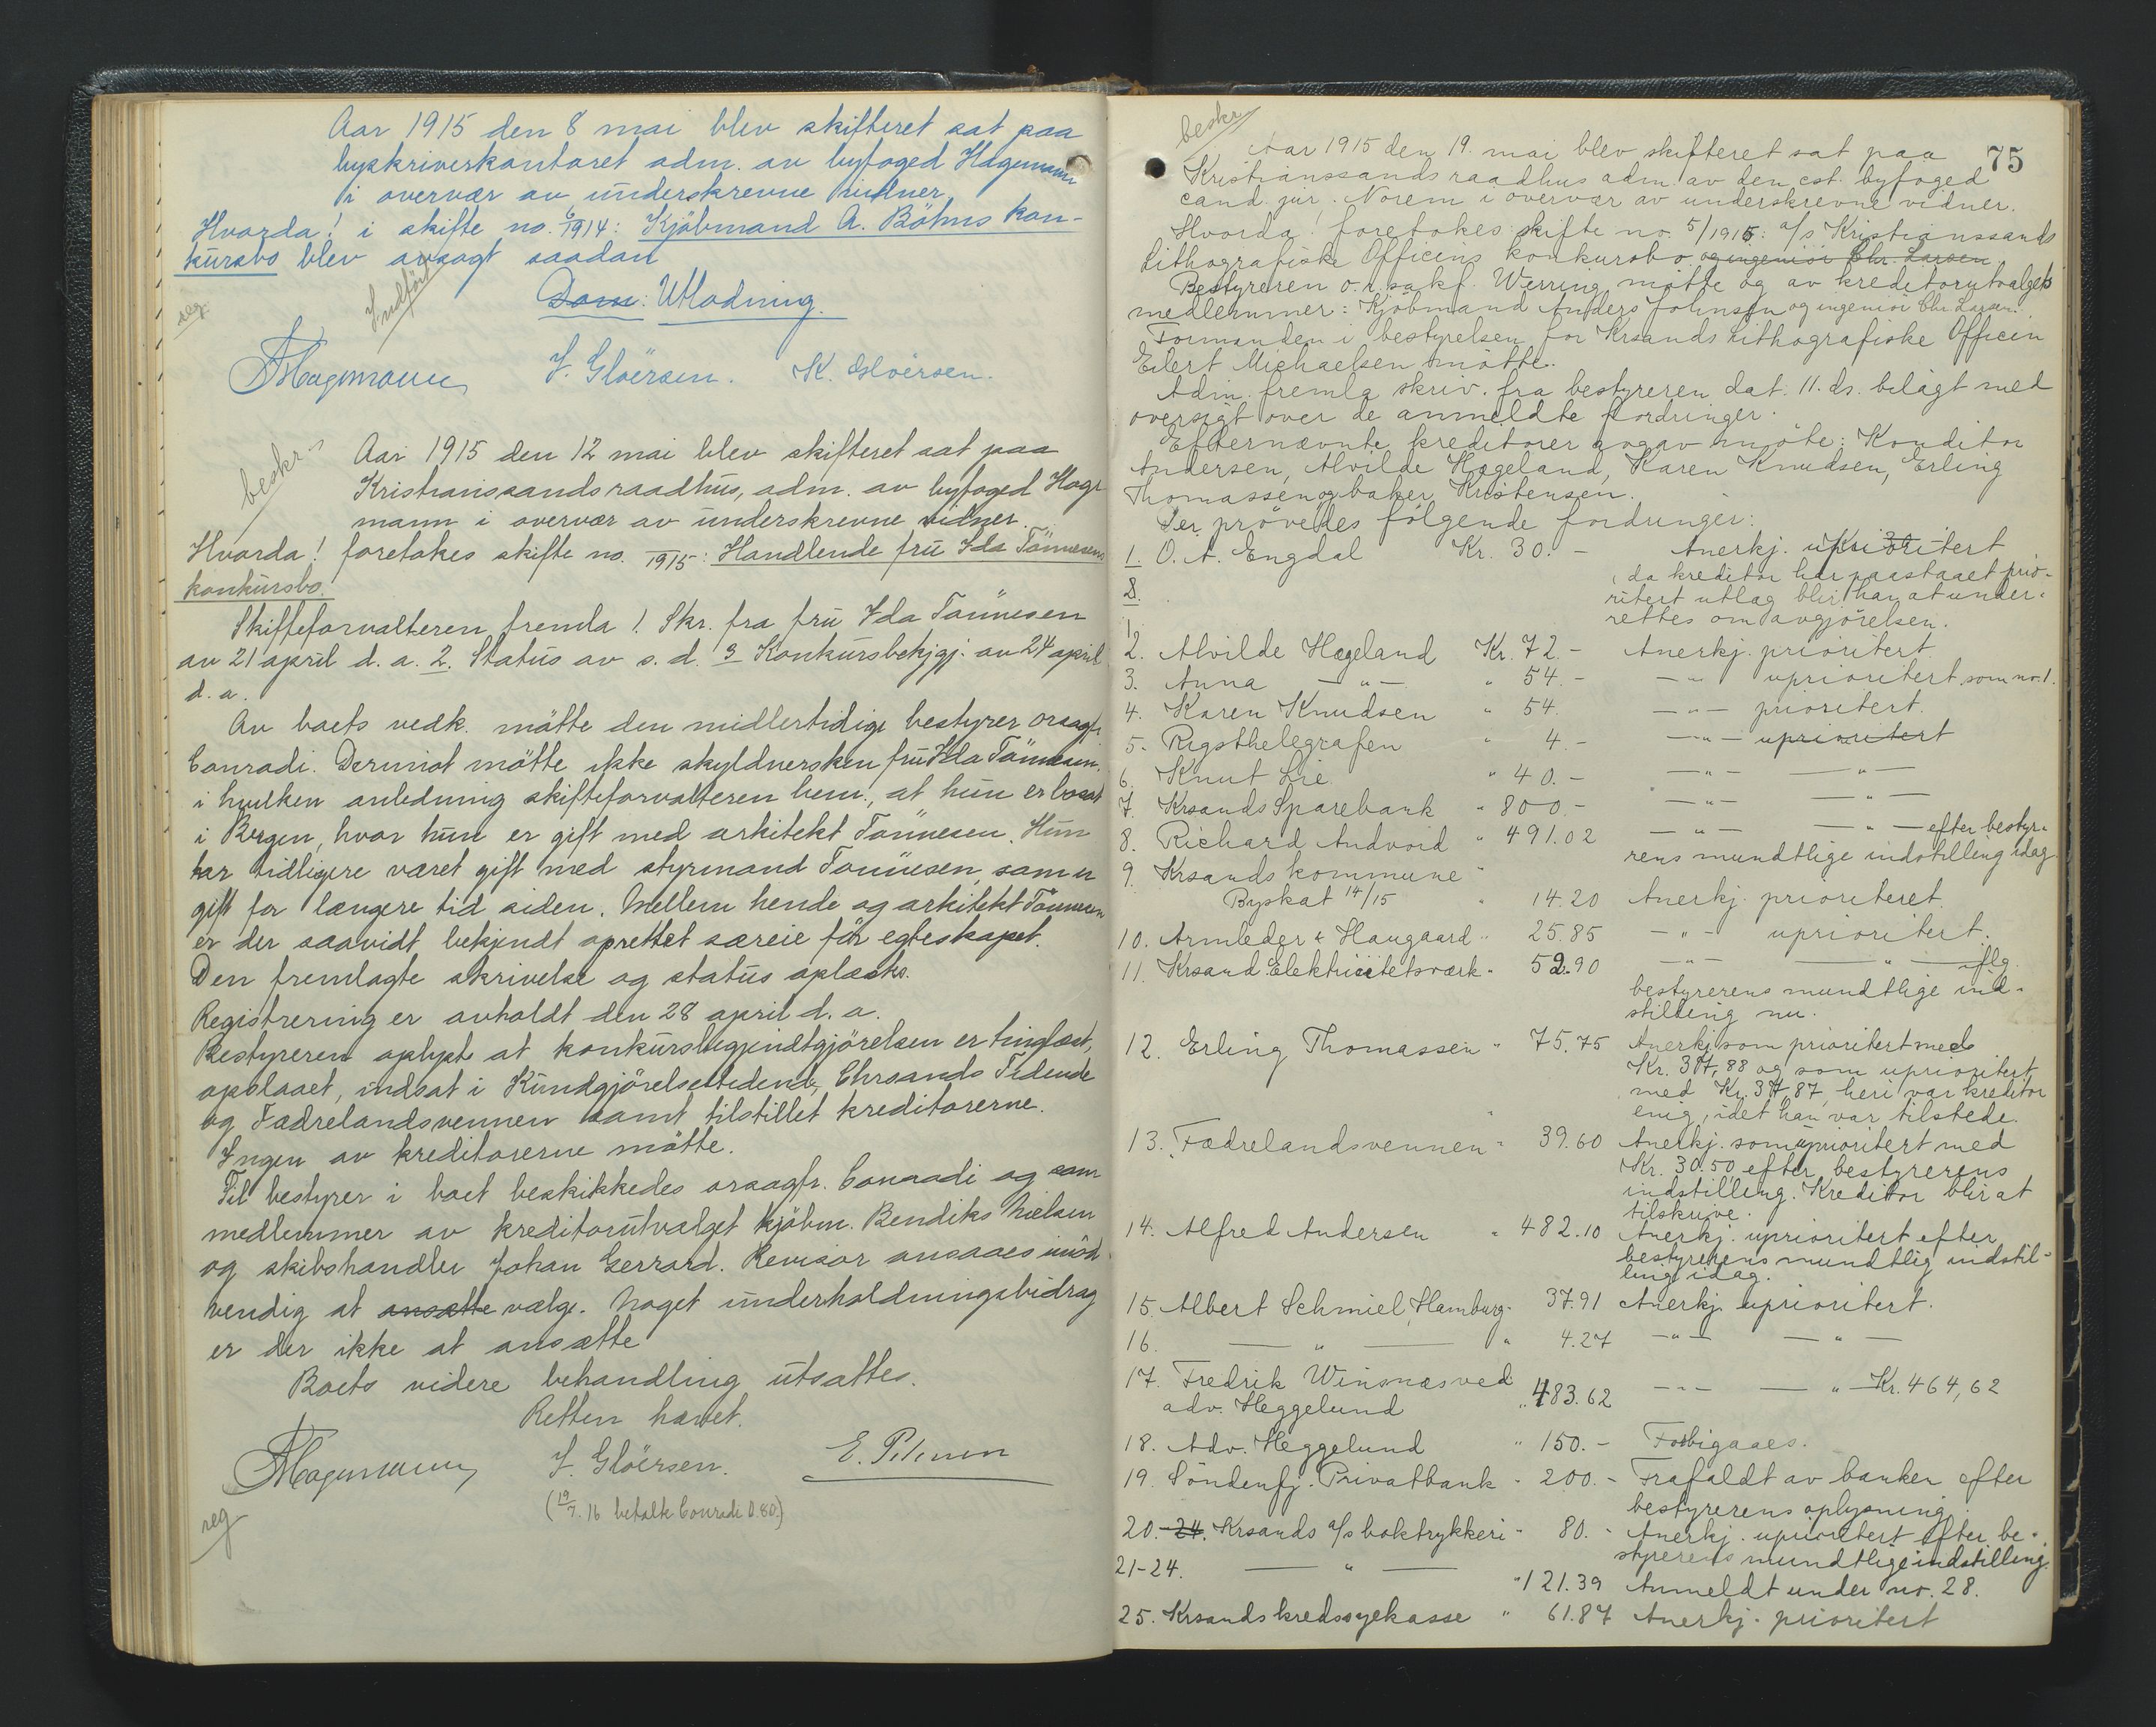 Aar 1915 den 8 mai blev skifteret sat paa
byskriverkontoret adm. av byfoged Hagemann
i overvær av underskrevne vidner.
Hvorda! i skifte no. 6/1914: Kjöbmand A. Böhns kon-
kursbo blev avsagt saadan
Indført
reg.
Dom: Utlodning.
Hagemann J. Glöersen. K. Glöersen.
beskr.
Aar 1915 den 12 mai blev skifteret sat paa
Kristianssands raadhus, adm. av byfoged Hage
mann i overvær av underskrevne vidner.
Hvorda! foretokes skifte no. /1915: Handlende fru Ida Tönnesens
konkursbo.
Skifteforvalteren fremla 1. Skr. fra fru Ida Tönnesen
av 21 april d. a. 2. Status av s. d. 3 Konkursbekjgj. av 24 april
d. a.
Av boets vedk. mötte den midlertidige bestyrer orsagf.
Conradi. Derimot mötte ikke skyldnersken fru Ida Tönnesen.
i hvilken anledning skifteforvalteren bem., at hun er bosat
i Bergen, hvor hun er gift med arkitekt Tönnesen. Hun
har tidligere været gift med styrmand Tönnesen, som er
gift for længere tid siden. Mellem hende og arkitekt Tönnesen
er der saavidt bekjendt oprettet særeie för egteskapet.
Den fremlagte skrivelse og status oplæstes.
Registrering er avholdt den 28 april d. a.
Bestyreren oplyste at konkursbegjendtgjörelsen er tinglæst,
opslaaet, indsat i Kundgjörelsestidende, Chrsands Tidende
og Fædrelandsvennen samt tilstillet kreditorerne.
Ingen av kreditorerne mötte.
Til bestyrer i boet beskikkedes orsagfr. Conradi og som
medlemmer av kreditorutvalget kjöbm. Bendiks Nielsen
og skibshandler Johan Gerrard. Revisor ansaaes unöd
vendig at ansætte vælge. Noget underholdningsbidrag
er der ikke at ansætte
Boets videre behandling utsattes.
Retten hævet.
Hagemann J. Glöersen. E. Petersen
(19/7. 16 betalt Conradi 0.80.)
reg
beskr
75
Aar 1915 den 19. mai blev skifteret sat paa
Kristianssands raadhus adm. av den cst. byfoged
cand. jur. Norem i overvær av underskrevne vidner.
Hvorda! foretokes skifte no. 5/1915: a/s Kristianssands
Lithografiske Officins konkursbo. og ingeniör Chr. Larsen.
Bestyreren o.r.sakf. Werring mötte og av kreditorutvalgets
medlemmer: Kjöbmand Anders Johnsen og ingeniör Chr. Larsen.
Formanden i bestyrelsen for Krsands Lithografiske Officin
Eilert Michaelsen mötte.
Adm. fremla skriv. fra bestyreren dat. 11. ds. bilagt med
oversigt over de anmeldte fordringer.
Efternævnte kreditorer avgav möte: Konditor
Andersen, Alvilde Hægeland, Karen Knudsen, Erling
Thomassen og baker Kristensen.
Der prövedes fölgende fordringer:
1. O. A. Engdal Kr. 30.- Anerkj. uprioritert
, da kreditor har paastaaet prio-
ritert utlæg blir han at under-
rettes om avgjörelsen.
2. Alvilde Hægeland Kr. 72.- Anerkj. prioritert.
3. Anna —"— " 54.- —"— uprioritert som no. 1.
4. Karen Knudsen " 54. —"— prioritert.
5. Rigsthelegrafen " 4.- —"— uprioritert
6. Knut Lie " 40.- —"— —"—
7. Krsands Sparebank " 800- —"— —"—
8. Richard Andvord " 491.02 —"— —"— efter besty-
rens mundtlige indstilling idag
9. Krsands kommune "
Byskat 14/15 " 14.20 Anerkj. prioriteret.
10. Armleder & Haugaard " 25.85 —"— uprioritert.
11. Krsand Elektricitetsværk " 52.90 —"— —"— iflg.
bestyrerens mundtlige ind-
stilling nu.
12. Erling Thomassen " 75.75 Anerkj. som prioritert med
Kr. 37,88 og som uprioritert
med Kr. 37,87, heri var kreditor
enig, idet han var tilstede.
13. Fædrelandsvennen " 39.60 Anerkj. som uprioritert med
Kr. 30.50 efter bestyrerens
indstilling. Kreditor blir at
tilskrive.
14. Alfred Andersen " 482.10 Anerkj. uprioritert efter
bestyrerens mundtlig indstil-
ling idag.
15. Albert Schmiel, Hamburg " 37.91 Anerkj. uprioritert.
16. —"— " 4.27 —"— —"—
17. Fredrik Winsnæs ved
adv. Heggelund " 483.62 —"— —"— Kr. 464,62
18. Adv. Heggelund " 150.- Forbigaaes.
19. Söndenfj. Privatbank " 200.- Frafaldt av banken efter
bestyrerens oplysning.
20. 24. Krsands a/s boktrykkeri " 80.- Anerkj. uprioritert efter be-
styrerens mundtlige indstilling.
21-24. —"— " 121.39 Anmeldt under no. 28.
25. Krsands kredssykekasse " 61.87 Anerkj. prioritert